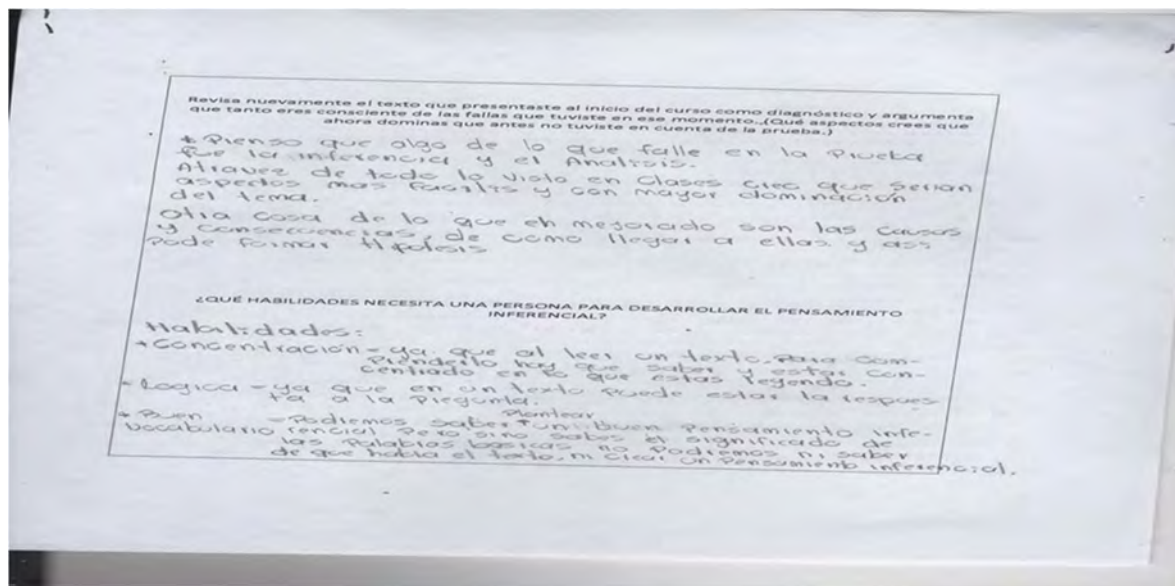 Revisa nuevamente el texto que presentaste al inicio del curso como diagnóstico y argumenta
que tanto eres consciente de las fallas que tuviste en ese momento..(Qué aspectos crees que
ahora dominas que antes no tuviste en cuenta de la prueba.)
* Pienso que algo de lo que falle en la Prueba
fue la inferencia y el Analisis.
Atravez de todo lo visto en clases creo que serian
aspectos mas faciles y con mayor dominación
del tema.
Otra cosa de lo que eh mejorado son las causas
y consecuencias, de como llegar a ellas y asi
Pode formar Hipotesis
¿QUÉ HABILIDADES NECESITA UNA PERSONA PARA DESARROLLAR EL PENSAMIENTO
INFERENCIAL?
Habilidades:
* Concentración - ya que al leer un texto, Para com-
Prenderlo hay que saber y estar con-
centrado en lo que estas leyendo.
* Logica - ya que en un texto puede estar la respues
ta a la Pregunta.
* Buen - Podremos saber Plantear un buen Pensamiento infe-
Vocabulario rencial Pero sino sabes el significado de
las Palabras basicas no Podremos ni saber
de que habla el texto, ni crear un Pensamiento inferencial.